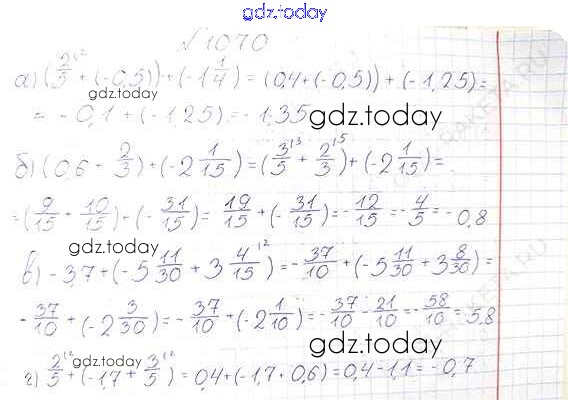 gdz.today
№1070
а) (2/5 + (-0,5)) + (-1 1/4) = (0,4 + (-0,5)) + (-1,25) =
gdz.today
= -0,1 + (-1,25) = -1,35
gdz.today
б) (0,6 + 2/3) + (-2 1/15) = (3/5 + 2/3) + (-2 1/15) =
= (9/15 + 10/15) + (-31/15) = 19/15 + (-31/15) = -12/15 = -4/5 = -0,8
gdz.today
в) -3,7 + (-5 11/30 + 3 4/15) = -37/10 + (-5 11/30 + 3 8/30) =
-37/10 + (-2 3/30) = -37/10 + (-2 1/10) = -37/10 - 21/10 = -58/10 = 5,8
gdz.today
gdz.today
г) 2/5 + (-1,7 + 3/5) = 0,4 + (-1,7 + 0,6) = 0,4 - 1,1 = -0,7